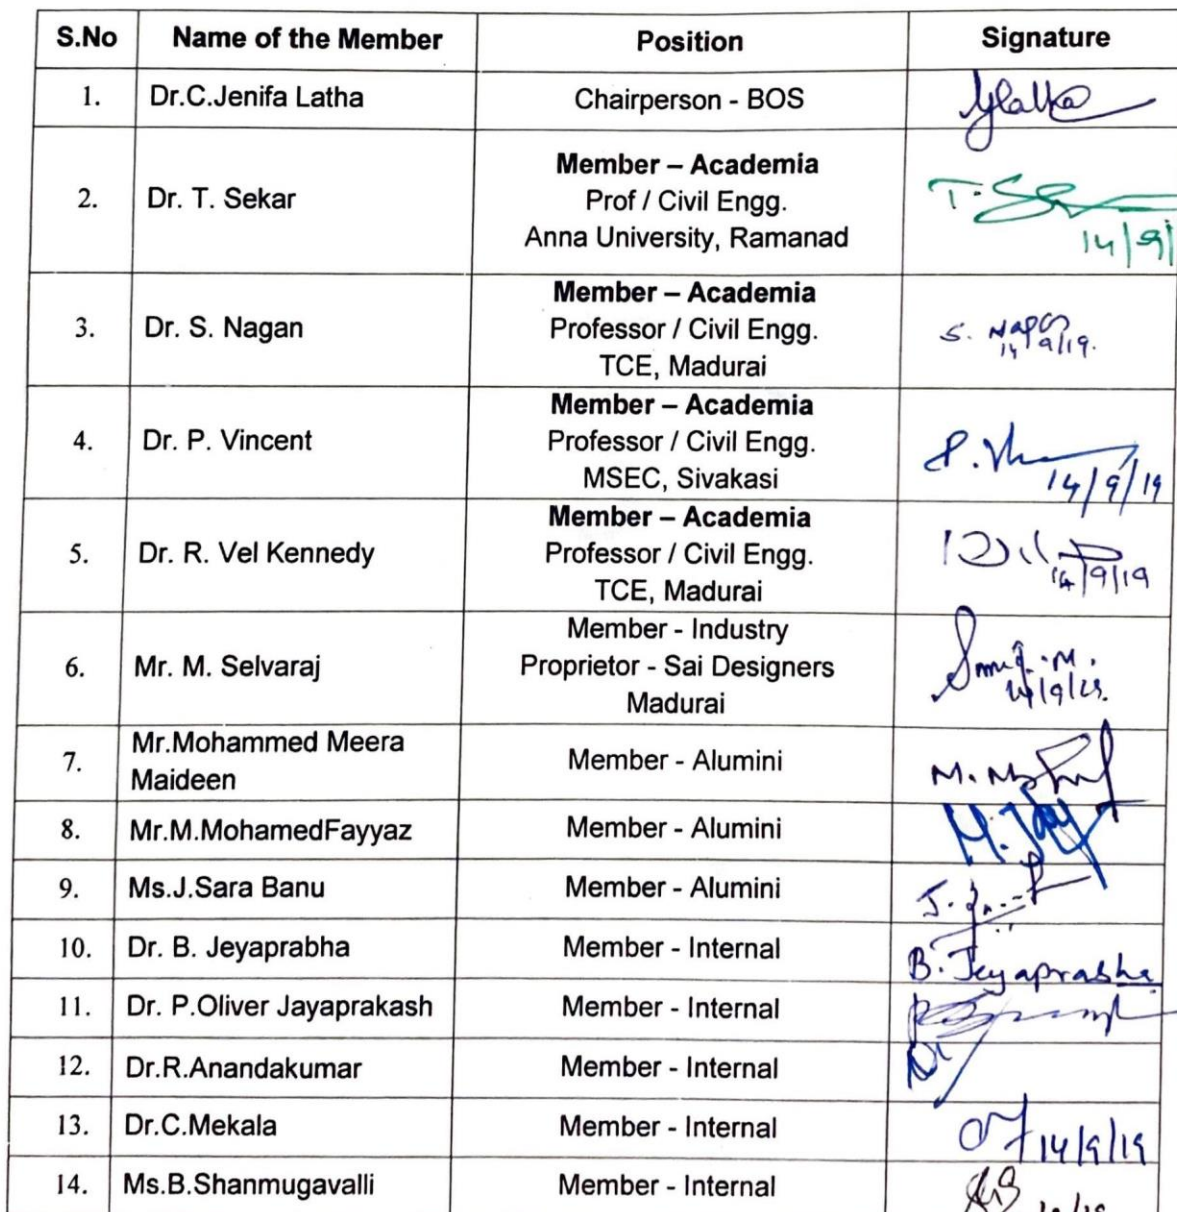 S.No Name of the Member Position Signature
1. Dr.C.Jenifa Latha Chairperson - BOS
2. Dr. T. Sekar Member – Academia
Prof / Civil Engg.
Anna University, Ramanad
T. 14/9/
3. Dr. S. Nagan Member – Academia
Professor / Civil Engg.
TCE, Madurai
S. 14/9/19.
4. Dr. P. Vincent Member – Academia
Professor / Civil Engg.
MSEC, Sivakasi
P. 14/9/19
5. Dr. R. Vel Kennedy Member – Academia
Professor / Civil Engg.
TCE, Madurai
14/9/19
6. Mr. M. Selvaraj Member - Industry
Proprietor - Sai Designers
Madurai
7. Mr.Mohammed Meera
Maideen
Member - Alumini
8. Mr.M.MohamedFayyaz Member - Alumini
9. Ms.J.Sara Banu Member - Alumini
10. Dr. B. Jeyaprabha Member - Internal B. Jeyaprabha
11. Dr. P.Oliver Jayaprakash Member - Internal
12. Dr.R.Anandakumar Member - Internal
13. Dr.C.Mekala Member - Internal 14/9/19
14. Ms.B.Shanmugavalli Member - Internal